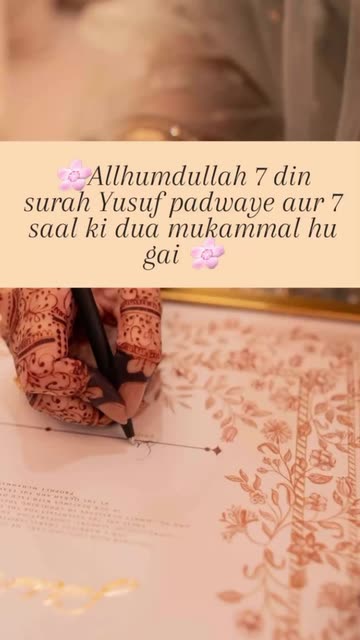 🌸Allhumdullah 7 din
surah Yusuf padwaye aur 7
saal ki dua mukammal hu
gai 🌸